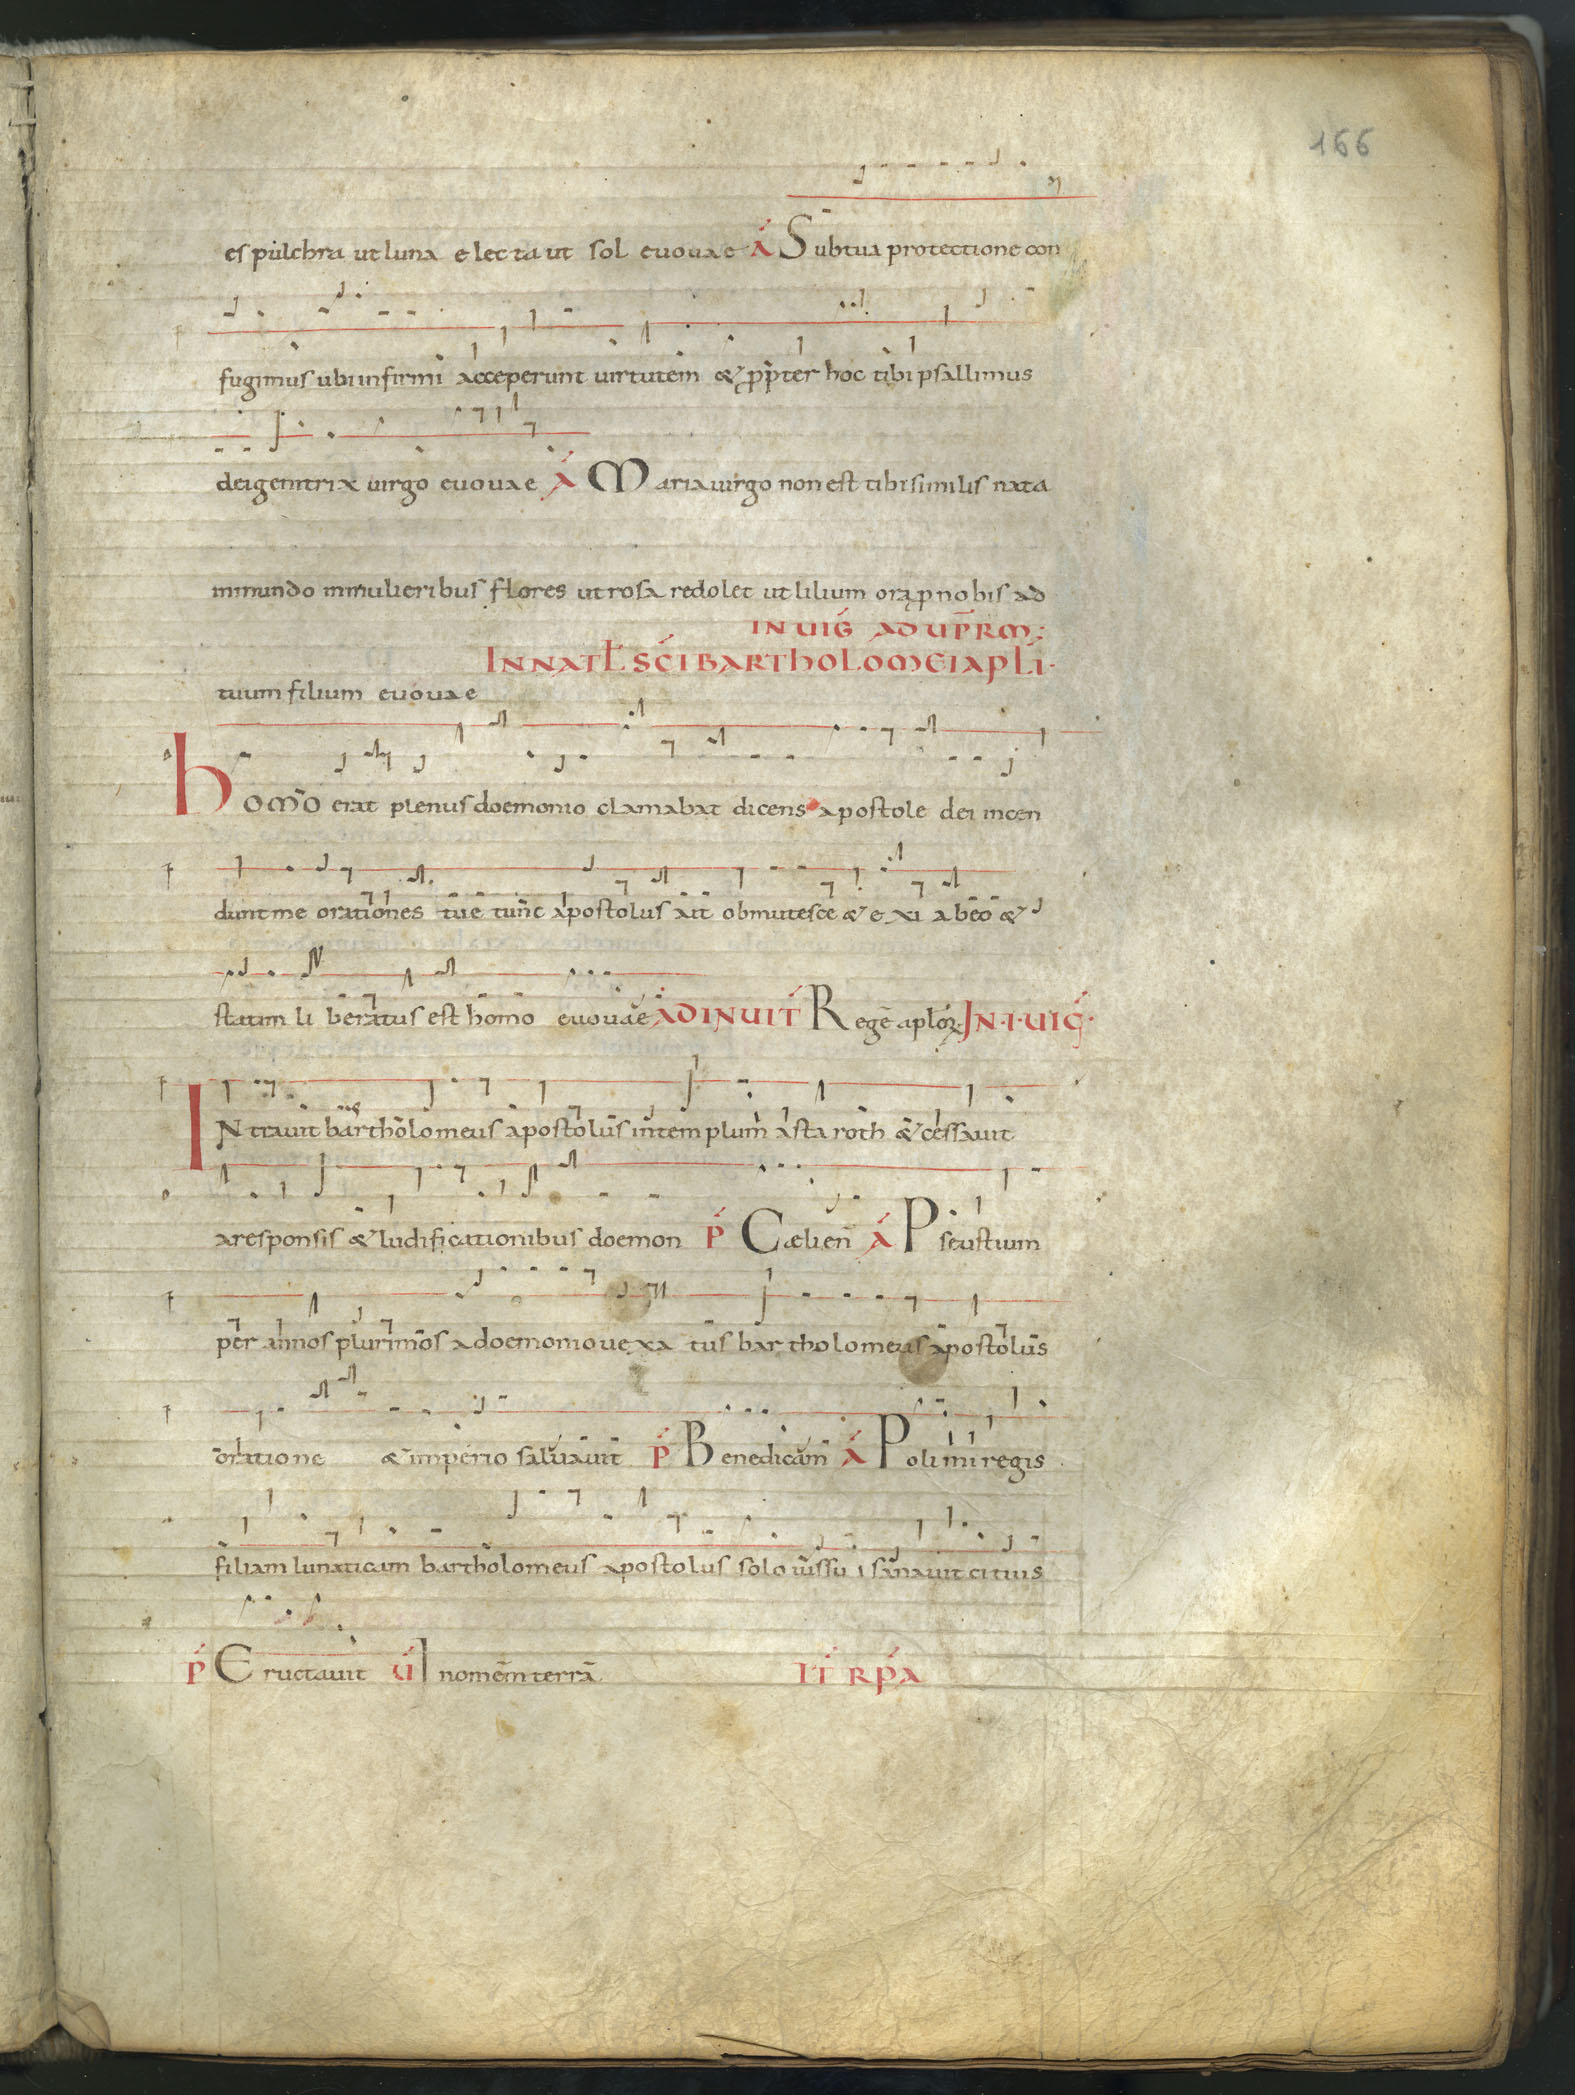 166
es pulchra ut luna electa ut sol evovae Á Sub tua protectione con
fugimus ubi infirmi acceperunt uirtutem & ꝓpter hoc tibi psallimus
dei genitrix uirgo evovae Á Maria uirgo non est tibi similis nata
in mundo in mulieribus flores ut rosa redolet ut lilium ora ꝓ nobis ad
IN UIG̃ AD UP̃RM;
IN NATƚ SC̄I BARTHOLOMEI APLI·
tuum filium evovae
Homo erat plenus doemonio clamabat dicens apostole dei incen
dunt me orationes tuę tunc apostolus ait obmutesce & exi ab eo &
statim liberatus est homo evovae AD INUIT̃ Regē aploꝝ. IN·I·UIG̃·
INtrauit bartholomeus apostolus in templum astaroth & cessauit
a responsis & ludificationibus doemon P̃ Cælien̄ Á Pseustium
per annos plurimos a doemonio uexatus bartholomeus apostolus
oratione & imperio saluauit P̃ Benedicam Á Polimi regis
filiam lunaticam bartholomeus apostolus solo iussu sanauit citius
P̃ Eructauit Ṽ In omnem terrā IT̃ RP̃A